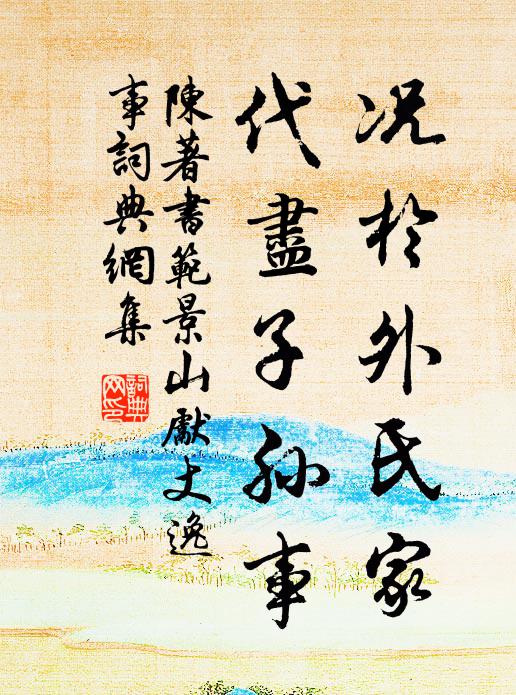 况於外氏家
代盡子孫事
陳著書範景山獻丈逸
事詞典網集
詞典
网印